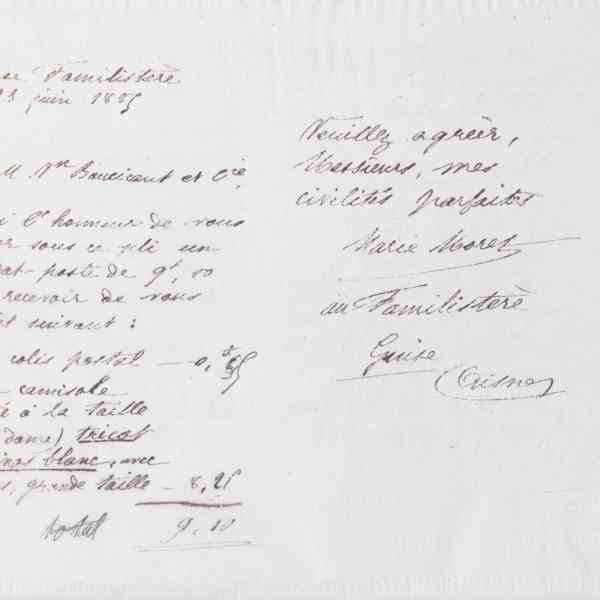 Familistère
23 juin 1885
M. Vve Boucicaut et Cie,
l'honneur de vous
sous ce pli un
poste de 9f, 10
recevoir de vous
suivant :
colis postal — 0,
camisole
à la taille
dame) tricot
blanc, avec
grande taille — 8,25
total 9.10
Veuillez agréer,
Messieurs, mes
civilités parfaites
Marie Moret
au Familistère
Guise
(Aisne)